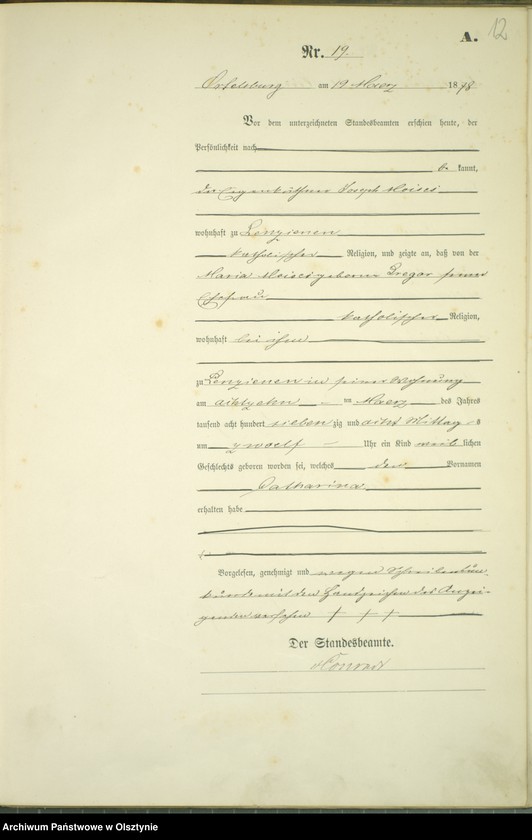 12
A.
Nr. 19.
Ortelsburg am 19 Maerz 1878
Vor dem unterzeichneten Standesbeamten erschien heute, der
Persönlichkeit nach
be kannt,
der Eigenkäthner Joseph
wohnhaft zu Lenzienen
katholischer Religion, und zeigte an, daß von der
Maria geborene Gregor seiner
Ehefrau
katholischer Religion,
wohnhaft bei ihm
zu Lenzienen in seiner Wohnung
am achtzehn ten Maerz des Jahres
tausend acht hundert sieben zig und acht Mittag s
um zwoelf Uhr ein Kind weib lichen
Geschlechts geboren worden sei, welches den Vornamen
Catharina
erhalten habe
Vorgelesen, genehmigt und wegen Schreibensun-
kunde mit den Handzeichen des Anzei-
genden versehen + + +
Der Standesbeamte.
Conrad
Archiwum Państwowe w Olsztynie